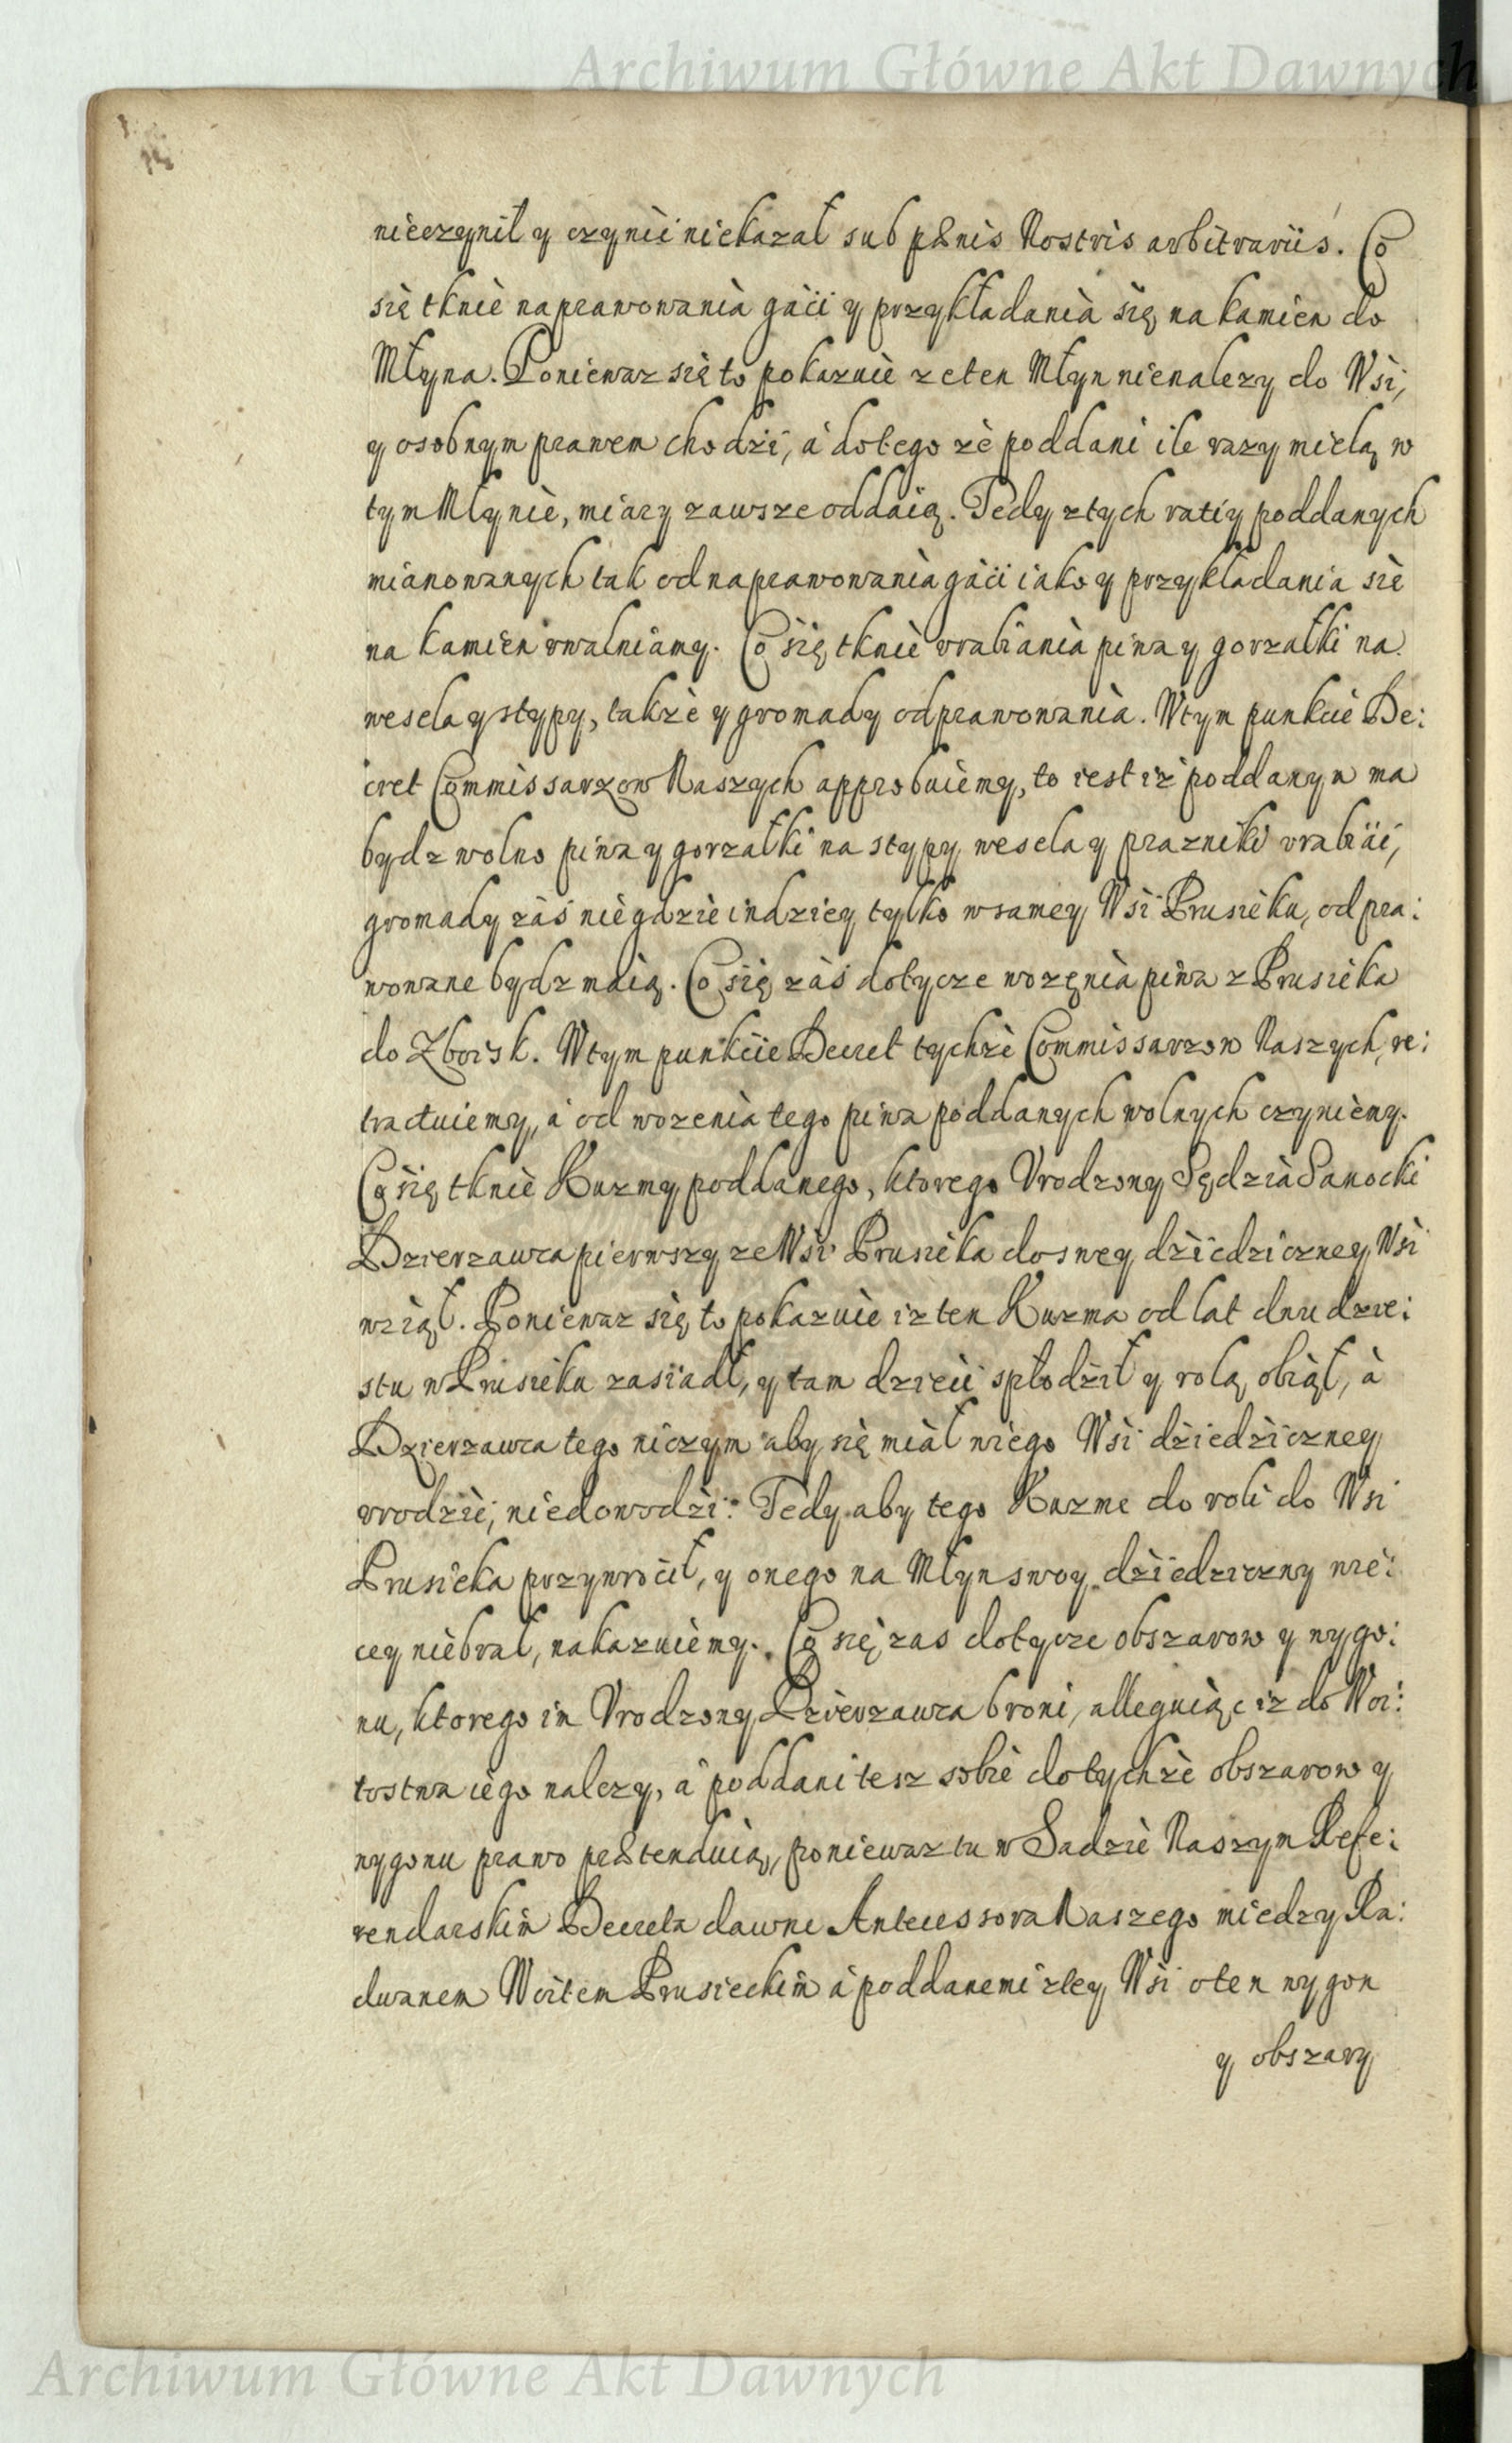 Archiwum Główne Akt Dawnych
nieczynił y czynić niekazał sub pænis Nostris arbitrariis. Co
się tknie naprawowania gaci y przykładania się na kamien do
Młyna. Poniewaz się to pokazuie ze ten Młyn nienalezy do Wsi,
y osobnym prawem chodzi, á dotego że poddani ile razy mielą w
tym Młynie, miary zawsze oddaią. Tedy ztych ratiy poddanych
mianowanych tak od naprawowania gaci iako y przykładania sie
na kamien vwalniamy. Co się tknie vrabiania piwa y gorzałki na
wesela y stypy, także y gromady odprawowania. Wtym punkcie De:
cret Commissarzow Naszych approbuiemy, to iest iż poddanym ma
bydz wolno piwa y gorzałki na stypy wesela y prazniki vrabiać,
gromady záś niegdzie indziey tylko wsamey Wsi Prusieku, odpra:
wowane bydz maią. Co się záś dotycze wozęnia piwa z Prusieka
do Zboisk. Wtym punkcie Decret tychże Commissarzow Naszych, re:
tractuiemy, á od wozenia tego piwa poddanych wolnych czyniemy.
Co się tknie Kuzmy poddanego, ktorego Vrodzony Sędzia Sanocki
Dzierzawca pierwszy ze Wsi Prusieka do swey dziedziczney Wsi
wziął. Poniewaz się to pokazuie iz ten Kuzma od lat dwudzie:
stu w Prusieku zasiadł, y tam dzieci spłodził y rolą obiął, à
Dzierzawca tego niczym aby się miał wiego Wsi dziedziczney
vrodzić, niedowodzi: Tedy aby tego Kuzme do roli do Wsi
Prusieka przywrocił, y onego na Młyn swoy dziedziczny wie:
cey niebrał, nakazuiemy. Co się zas dotycze obszarow y wygo:
nu, ktorego im Vrodzony Dzierzawca broni, alleguiąc iz do Woi:
tostwa iego nalezy, á poddani tesz sobie dotychże obszarow y
wygonu prawo prætenduią, poniewaz tu w Sadzie Naszym Refe:
rendarskim Decreta dawne Antecessora Naszego miedzy Ra:
dwanem Woitem Prusieckim á poddanemi ztey Wsi oten wygon
y obszary
Archiwum Główne Akt Dawnych